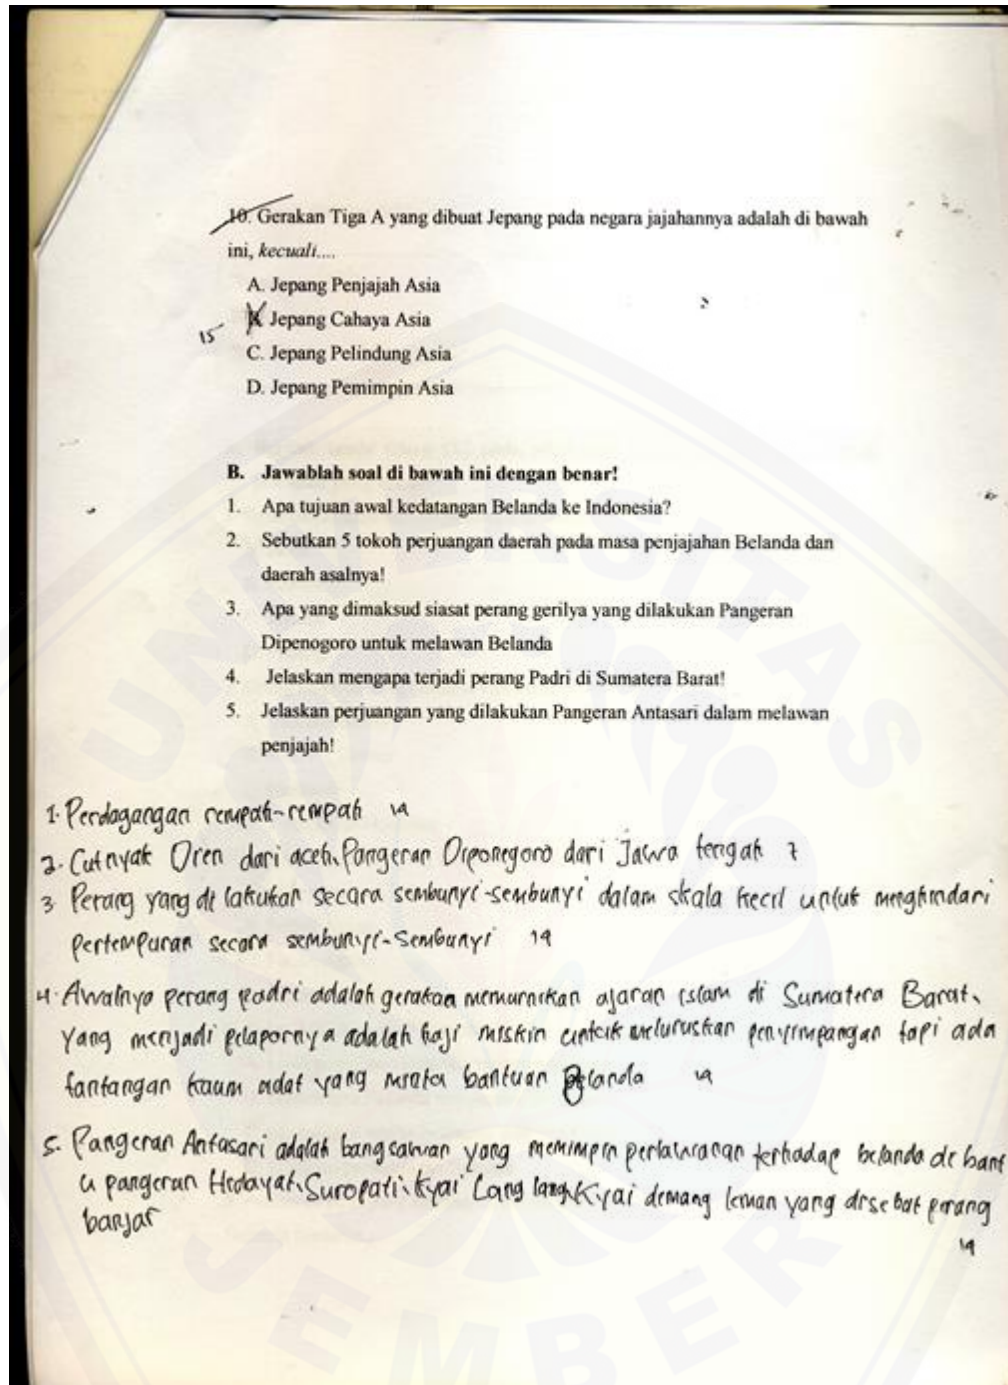 10. Gerakan Tiga A yang dibuat Jepang pada negara jajahannya adalah di bawah
ini, kecuali....
A. Jepang Penjajah Asia
Jepang Cahaya Asia
15
C. Jepang Pelindung Asia
D. Jepang Pemimpin Asia
B. Jawablah soal di bawah ini dengan benar!
1. Apa tujuan awal kedatangan Belanda ke Indonesia?
2. Sebutkan 5 tokoh perjuangan daerah pada masa penjajahan Belanda dan
daerah asalnya!
3. Apa yang dimaksud siasat perang gerilya yang dilakukan Pangeran
Dipenogoro untuk melawan Belanda
4. Jelaskan mengapa terjadi perang Padri di Sumatera Barat!
5. Jelaskan perjuangan yang dilakukan Pangeran Antasari dalam melawan
penjajah!
1. Perdagangan rempah-rempah
2. Cutnyak Dien dari aceh, Pangeran Diponegoro dari Jawa tengah 7
3 Perang yang di lakukan secara sembunyi-sembunyi dalam skala kecil untuk menghindari
pertempuran secara sembunyi-sembunyi
4. Awalnya perang padri adalah gerakan memurnikan ajaran islam di Sumatera Barat,
yang menjadi pelapornya adalah haji miskin untuk meluruskan penyimpangan tapi ada
tantangan kaum adat yang minta bantuan Belanda
5. Pangeran Antasari adalah bangsawan yang memimpin perlawanan terhadap belanda di bant
u pangeran Hidayat, Suropati, Kyai Lang lang, Kyai demang leman yang disebut perang
banjar
UNIVERSITAS
JEMBER